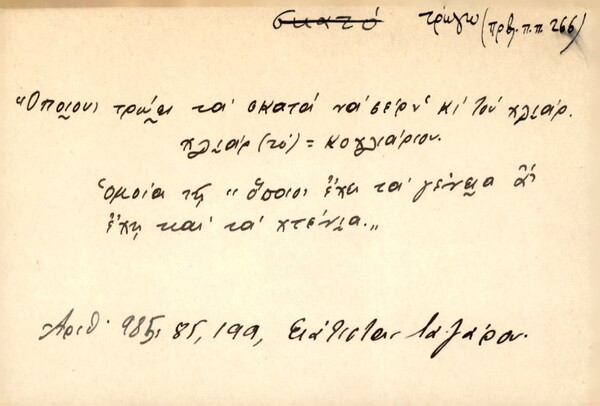 σκατό τρώγω (πρβ. π.π. 266)
"Όποιους τρώει τα σκατά να σέρν' κι τον χλιάρ.
χλιάρ (το) = κοχλιάριον.
Όμοια τη "όποιος έχει τα γένεια ας
έχη και τα χτένια."
Αριθ. 985, 85, 199, Σιάτιστα. Λαζάρου.